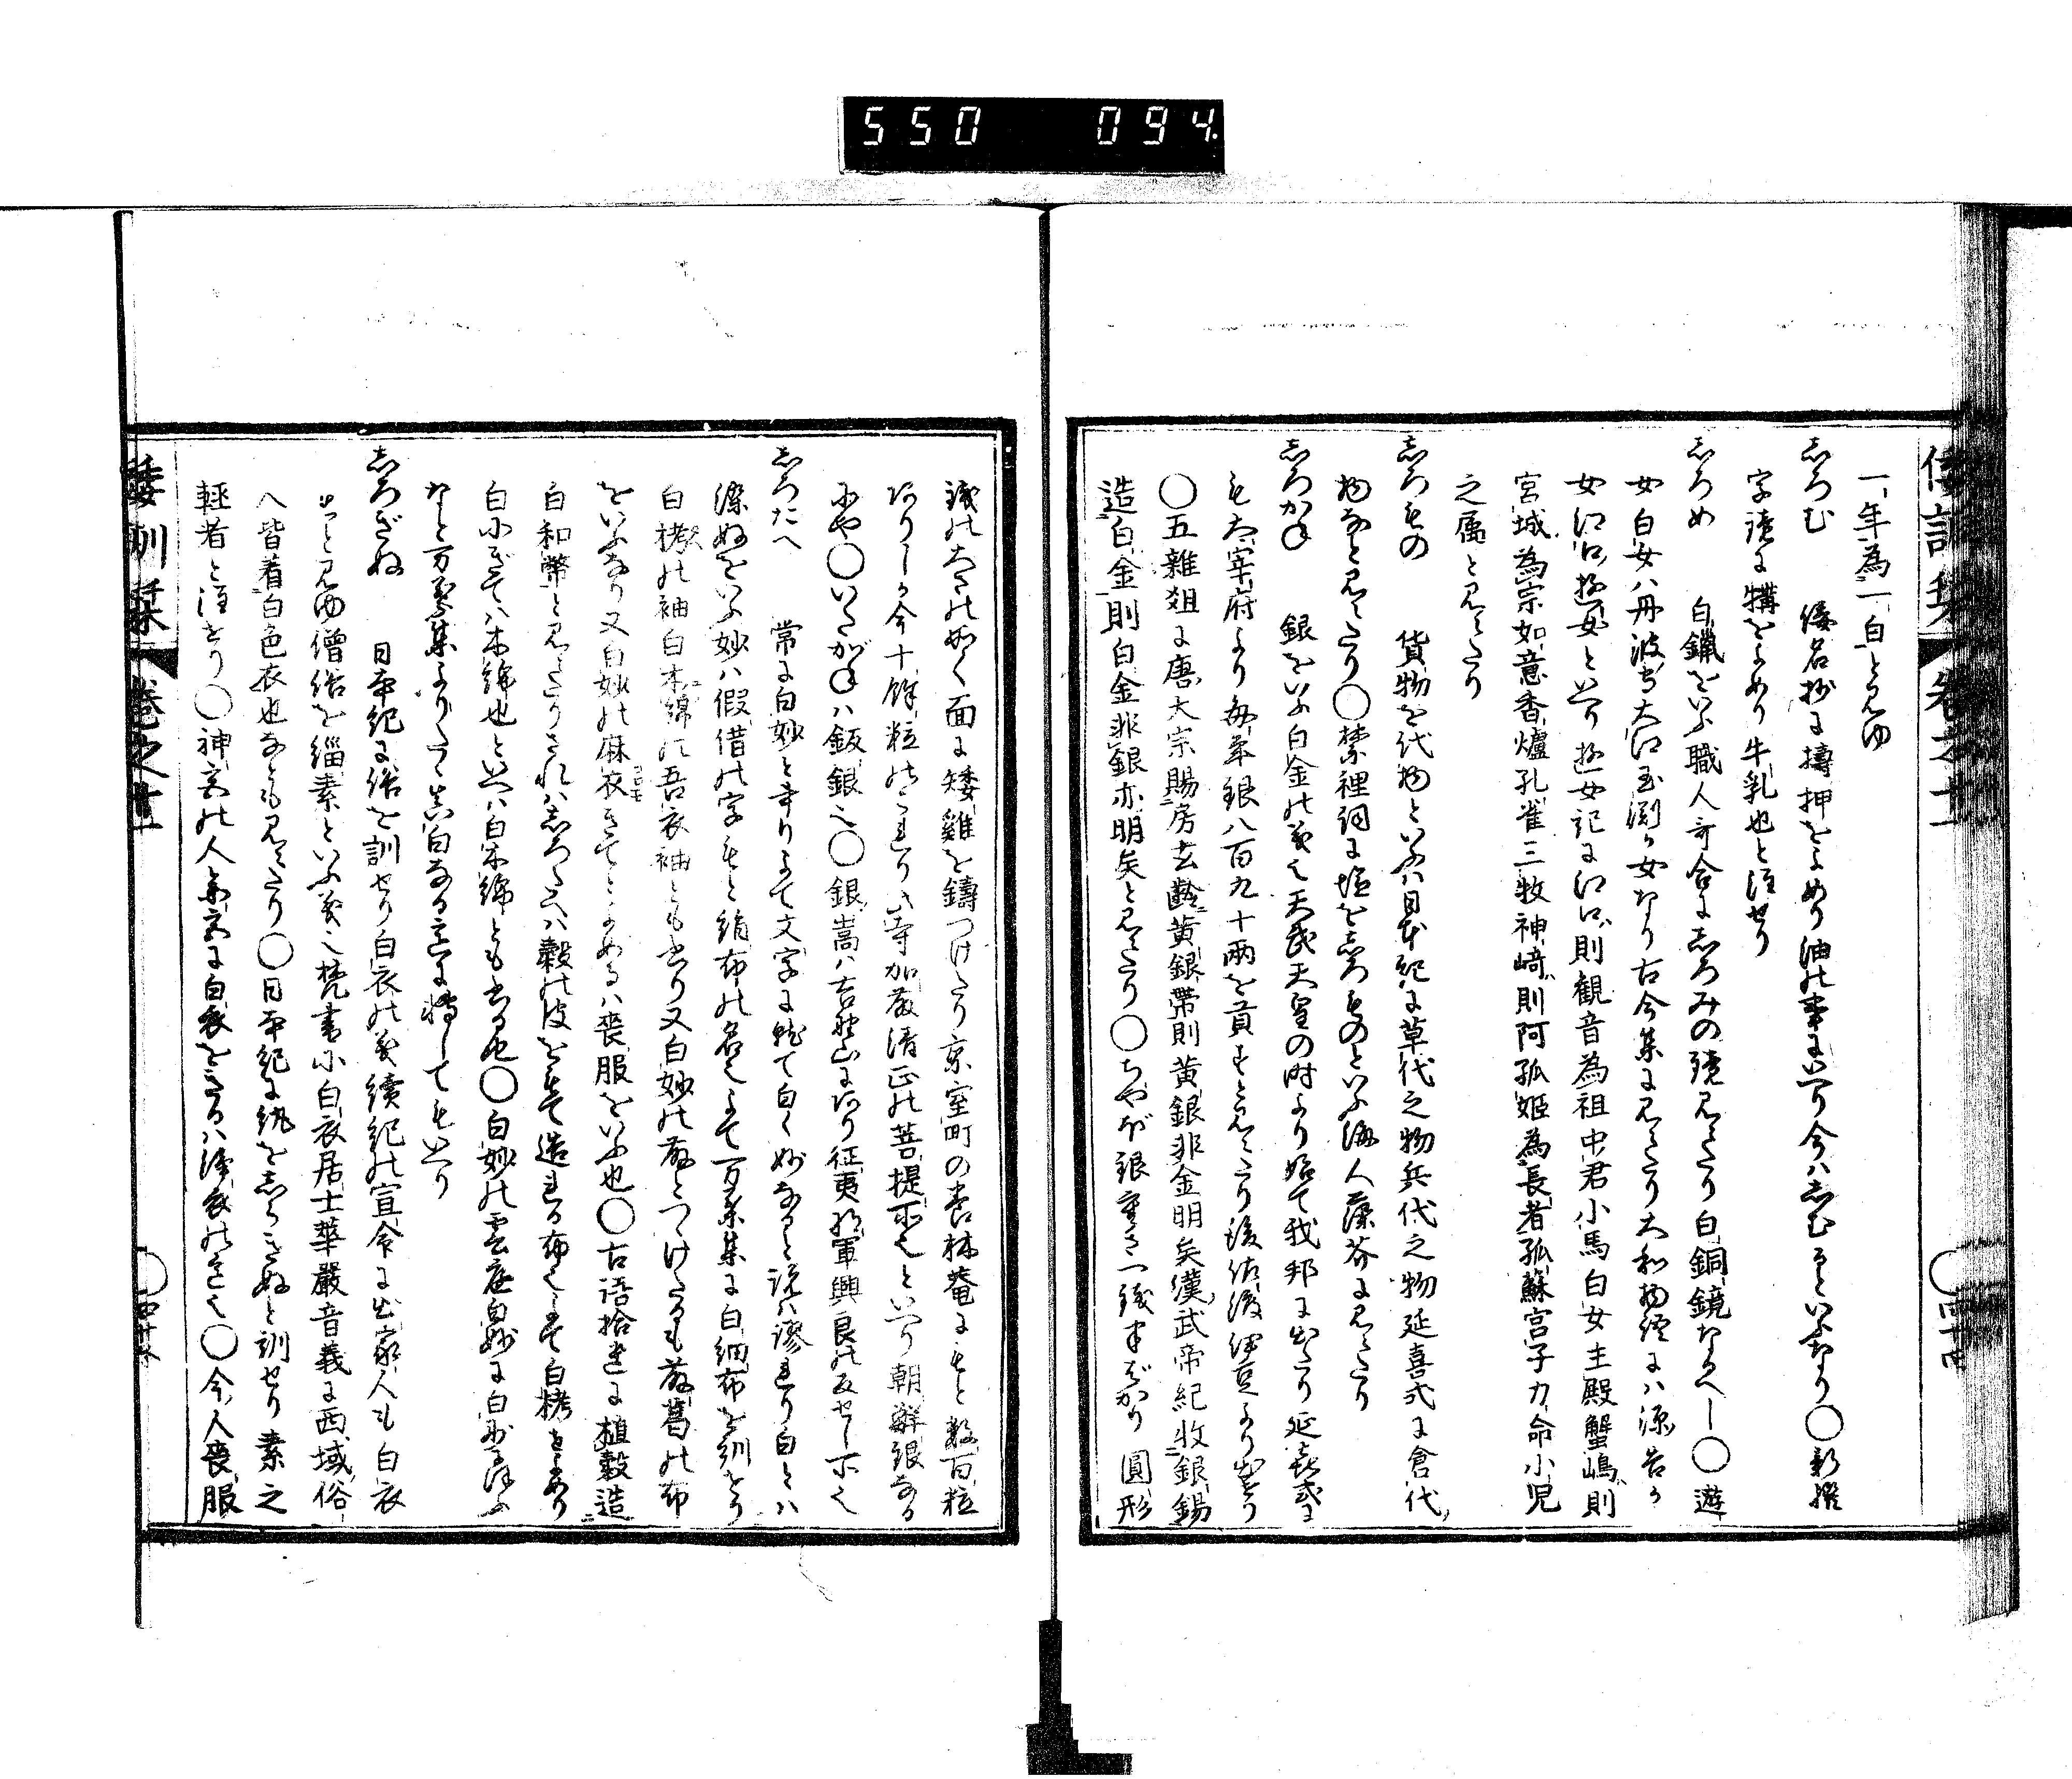 550 094
倭訓栞 巻之十一
一年為一白と見ゆ
しろむ 倭名抄に擣押をよめり油の事にいへり今ハしむるといふなり〇新撰
字鏡に犕をよめり牛乳也と注せり
しろめ 白鑞をいふ職人歌合にしろみの鏡見えたり白銅鏡なるへし〇遊
女白女ハ丹波守大江玉淵か女なり古今集に見えたり大和物語にハ源告か
女江口遊女といへり遊女記に江口則観音為祖中君小馬白女主殿蟹嶋則
宮城為宗如意香爐孔雀三牧神崎則阿孤姫為長者孤蘇宮子力命小児
之属と見えたり
しろもの 貨物を代物といふハ日本紀に草代之物兵代之物延喜式に倉代
物なと見えたり〇禁裡詞に塩をしろものといふ海人藻芥に見えたり
しろかね 銀をいふ白金の義也天武天皇の時より始て我邦に出たり延喜式に
も太宰府より毎年銀八百九十両を貢すと見えたり後佐渡伊豆より出せり
〇五雜俎に唐太宗賜房玄齡黄銀帶則黄銀非金明矣漢武帝紀收銀錫
造白金則白金非銀亦明矣と見えたり〇ちやぼ銀重さ一錢半ばかり圓形
錢の大さの如く面に矮雞を鑄つけたり京室町の養林菴にもと数百粒
ありしか今十餘粒のこれり此寺加藤清正の菩提所也といへり朝鮮銀なる
にや〇いたがねハ鈑銀也〇銀嵩ハ吉野山にあり征夷将軍興良の反せし所也
しろたへ 常に白妙と書りよて文字に就て白く妙なると説ハ謬れり白とハ
染ぬをいふ妙ハ假借の字もと絹布の名也よて万葉集に白細布を訓せり
白栲の袖白木綿の吾衣袖とも書り又白妙の藤とつゝけたるも藤葛の布
をいふなり又白妙の麻衣きてとよめるハ喪服をいふ也〇古語拾遺に植穀造
白和幣と見えたりされハしろたへハ穀の皮をもて造れる布也よて白栲とよめり
白にぎてハ木綿也といへハ白木綿とも書る也〇白妙の雲庭白妙に白砂降ふ
なと万葉集よりして真白なる意に轉してもいへり
しろぎぬ 日本紀に俗を訓せり白衣の義續紀の宣命に出家人も白衣
もと見ゆ僧俗を緇素といふ義也梵書に白衣居士華嚴音義に西域俗
人皆着白色衣也なとも見えたり〇日本紀に紈をしらきぬと訓せり素之
輕者と注せり〇神宮の人参宮に白衣をきるハ浄衣の意也〇今人喪服
倭訓栞 巻之十一